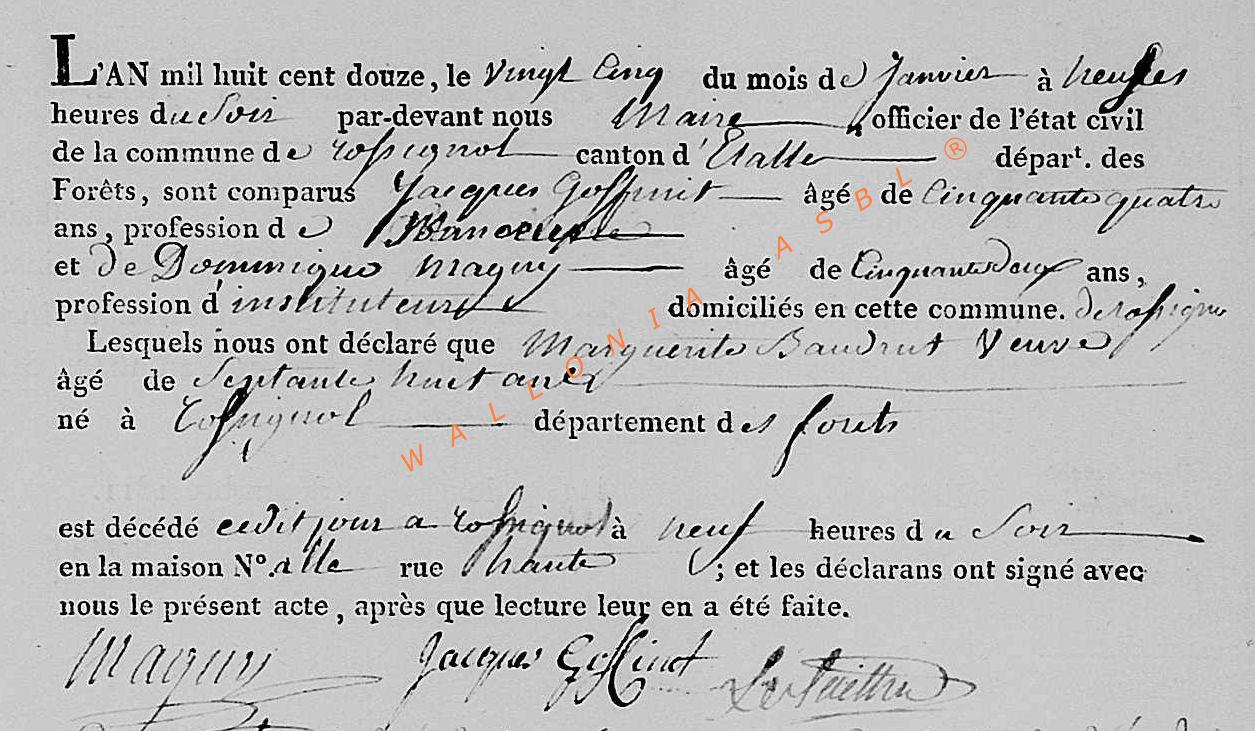 L'AN mil huit cent douze, le vingt Cinq du mois de Janvier à neufes
heures du Soir par-devant nous Maire officier de l'état civil
de la commune de rossignol canton d'Etalle dépar^t. des
Forêts, sont comparus Jacques Goffinet âgé de Cinquante quatre
ans, profession de
et de Dominique Maguy âgé de Cinquante deux ans,
profession d'instituteur domiciliés en cette commune. de rossignol
Lesquels nous ont déclaré que Marguerite Baudrut Veuve
âgé de Septante huit ans
né à rossignol département des forets
est décédé cedit jour a rossignol à neuf heures du Soir
en la maison N°. a elle rue haute ; et les déclarans ont signé avec
nous le présent acte, après que lecture leur en a été faite.
Maguy Jacques Goffinet
WALLONIA ASBL ®